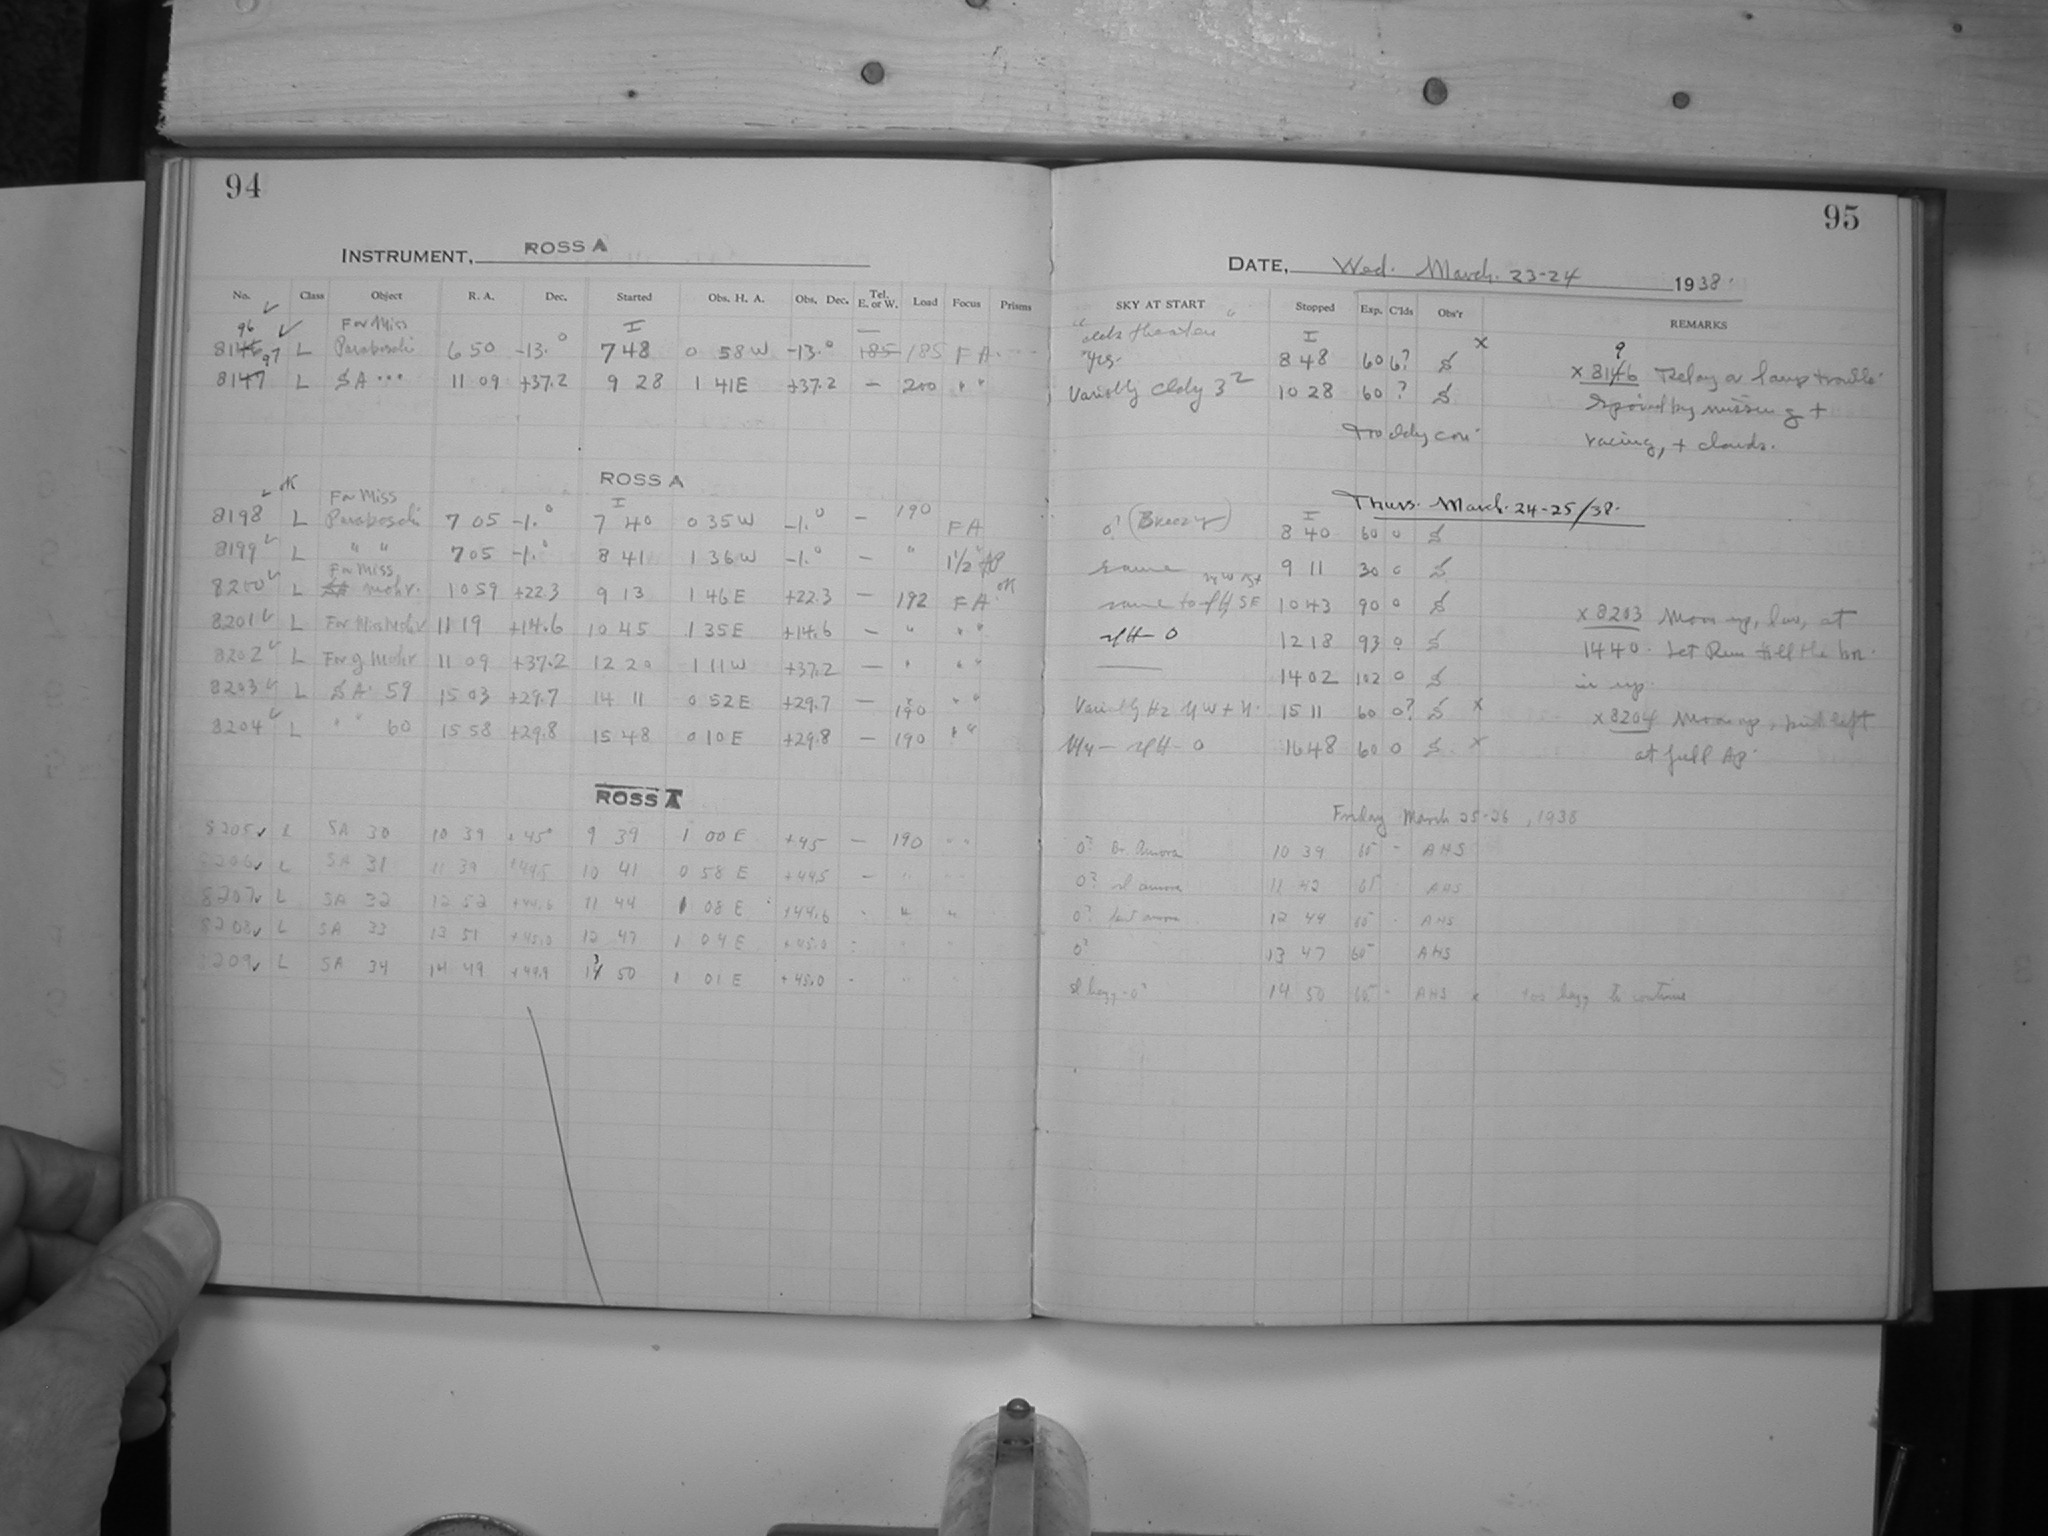 94
INSTRUMENT, ROSS A
No. Class Object R. A. Dec. Started Obs. H. A. Obs. Dec. Tel. E. or W. Load Focus Prisms
96 For Miss I
8146 L Paraboschi 6 50 -13.° 7 48 0 58 W -13.° 185 185 F A
97
8147 L SA ... 11 09 +37.2 9 28 1 41 E +37.2 - 200 " "
ROSS A
OK For Miss I
8198 L Paraboschi 7 05 -1.° 7 40 0 35 W -1.° - 190 F A
8199 L " " 7 05 -1.° 8 41 1 36 W -1.° - " 1 1/2" Ap
For Miss
8200 L SA Mohr. 10 59 +22.3 9 13 1 46 E +22.3 - 192 F A OK
8201 L For Miss Mohr 11 19 +14.6 10 45 1 35 E +14.6 - " " "
8202 L For g Mohr 11 09 +37.2 12 20 1 11 W +37.2 - " " "
8203 L SA 59 15 03 +29.7 14 11 0 52 E +29.7 - 190 " "
8204 L " " 60 15 58 +29.8 15 48 0 10 E +29.8 - 190 " "
ROSS A
8205 L SA 30 10 39 +45° 9 39 1 00 E +45 - 190 " "
8206 L SA 31 11 39 +44.5 10 41 0 58 E +44.5 - "
8207 L SA 32 12 52 +44.6 11 44 1 08 E +44.6 " " "
8208 L SA 33 13 51 +45.0 12 47 1 04 E +45.0
8209 L SA 34 14 49 +44.9 13 50 1 01 E +45.0
95
DATE, Wed. March. 23-24 1938.
SKY AT START Stopped Exp. C'lds Obs'r REMARKS
I x 9
Yes. 8 48 60 6? S x 8146 Relay or lamp trouble
Variably Cldy 3 2 10 28 60 ? S Spoiled by missing +
too cldy con. racing, + clouds.
Thurs. March. 24-25/38.
I
0? (Breezy) 8 40 60 0 S
same 9 11 30 0 S
same to SE 10 43 90 0 S x 8203 Moon up, low, at
0 12 18 93 0 S 1440. Let Run till the hr.
14 02 102 0 S is up.
Variably Hz W + 15 11 60 0? S x x 8204 Moon up, but left
0 16 48 60 0 S x at full Ap.
Friday March 25-26, 1938
0? Br Aurora 10 39 60 - AHS
0? sl aurora 11 42 60 AHS
0? aurora 12 44 60 AHS
0? 13 47 60 AHS
sl hazy - 0? 14 50 60 - AHS x too hazy to continue